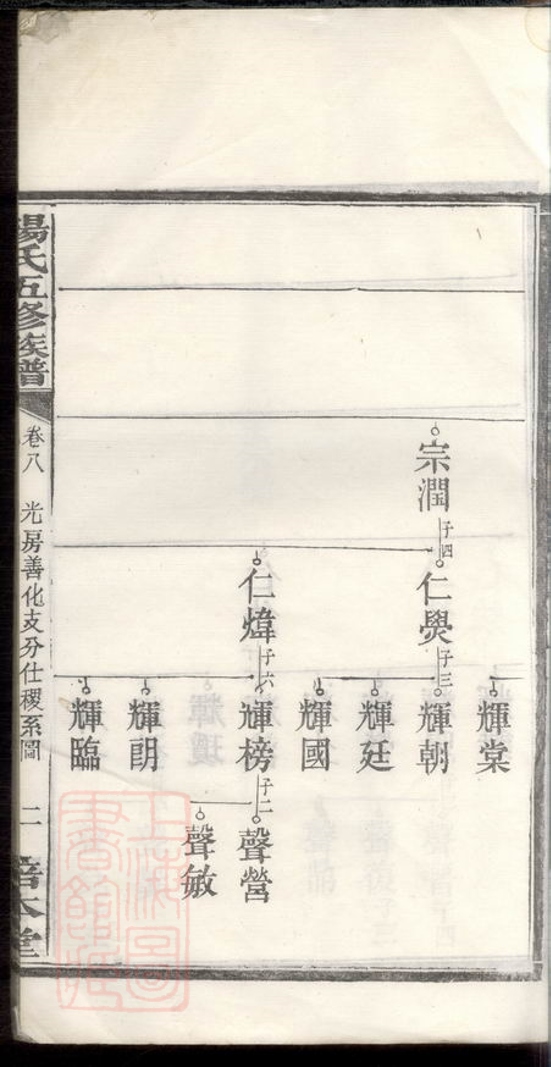 宗潤
子四
仁煚
子三
仁煒
子六
輝棠
輝朝
輝廷
輝國
輝榜
子二
輝朗
輝臨
聲營
聲敏
楊氏五修族譜
卷八
光房善化支分仕稷系圖
二
上海圖書館藏